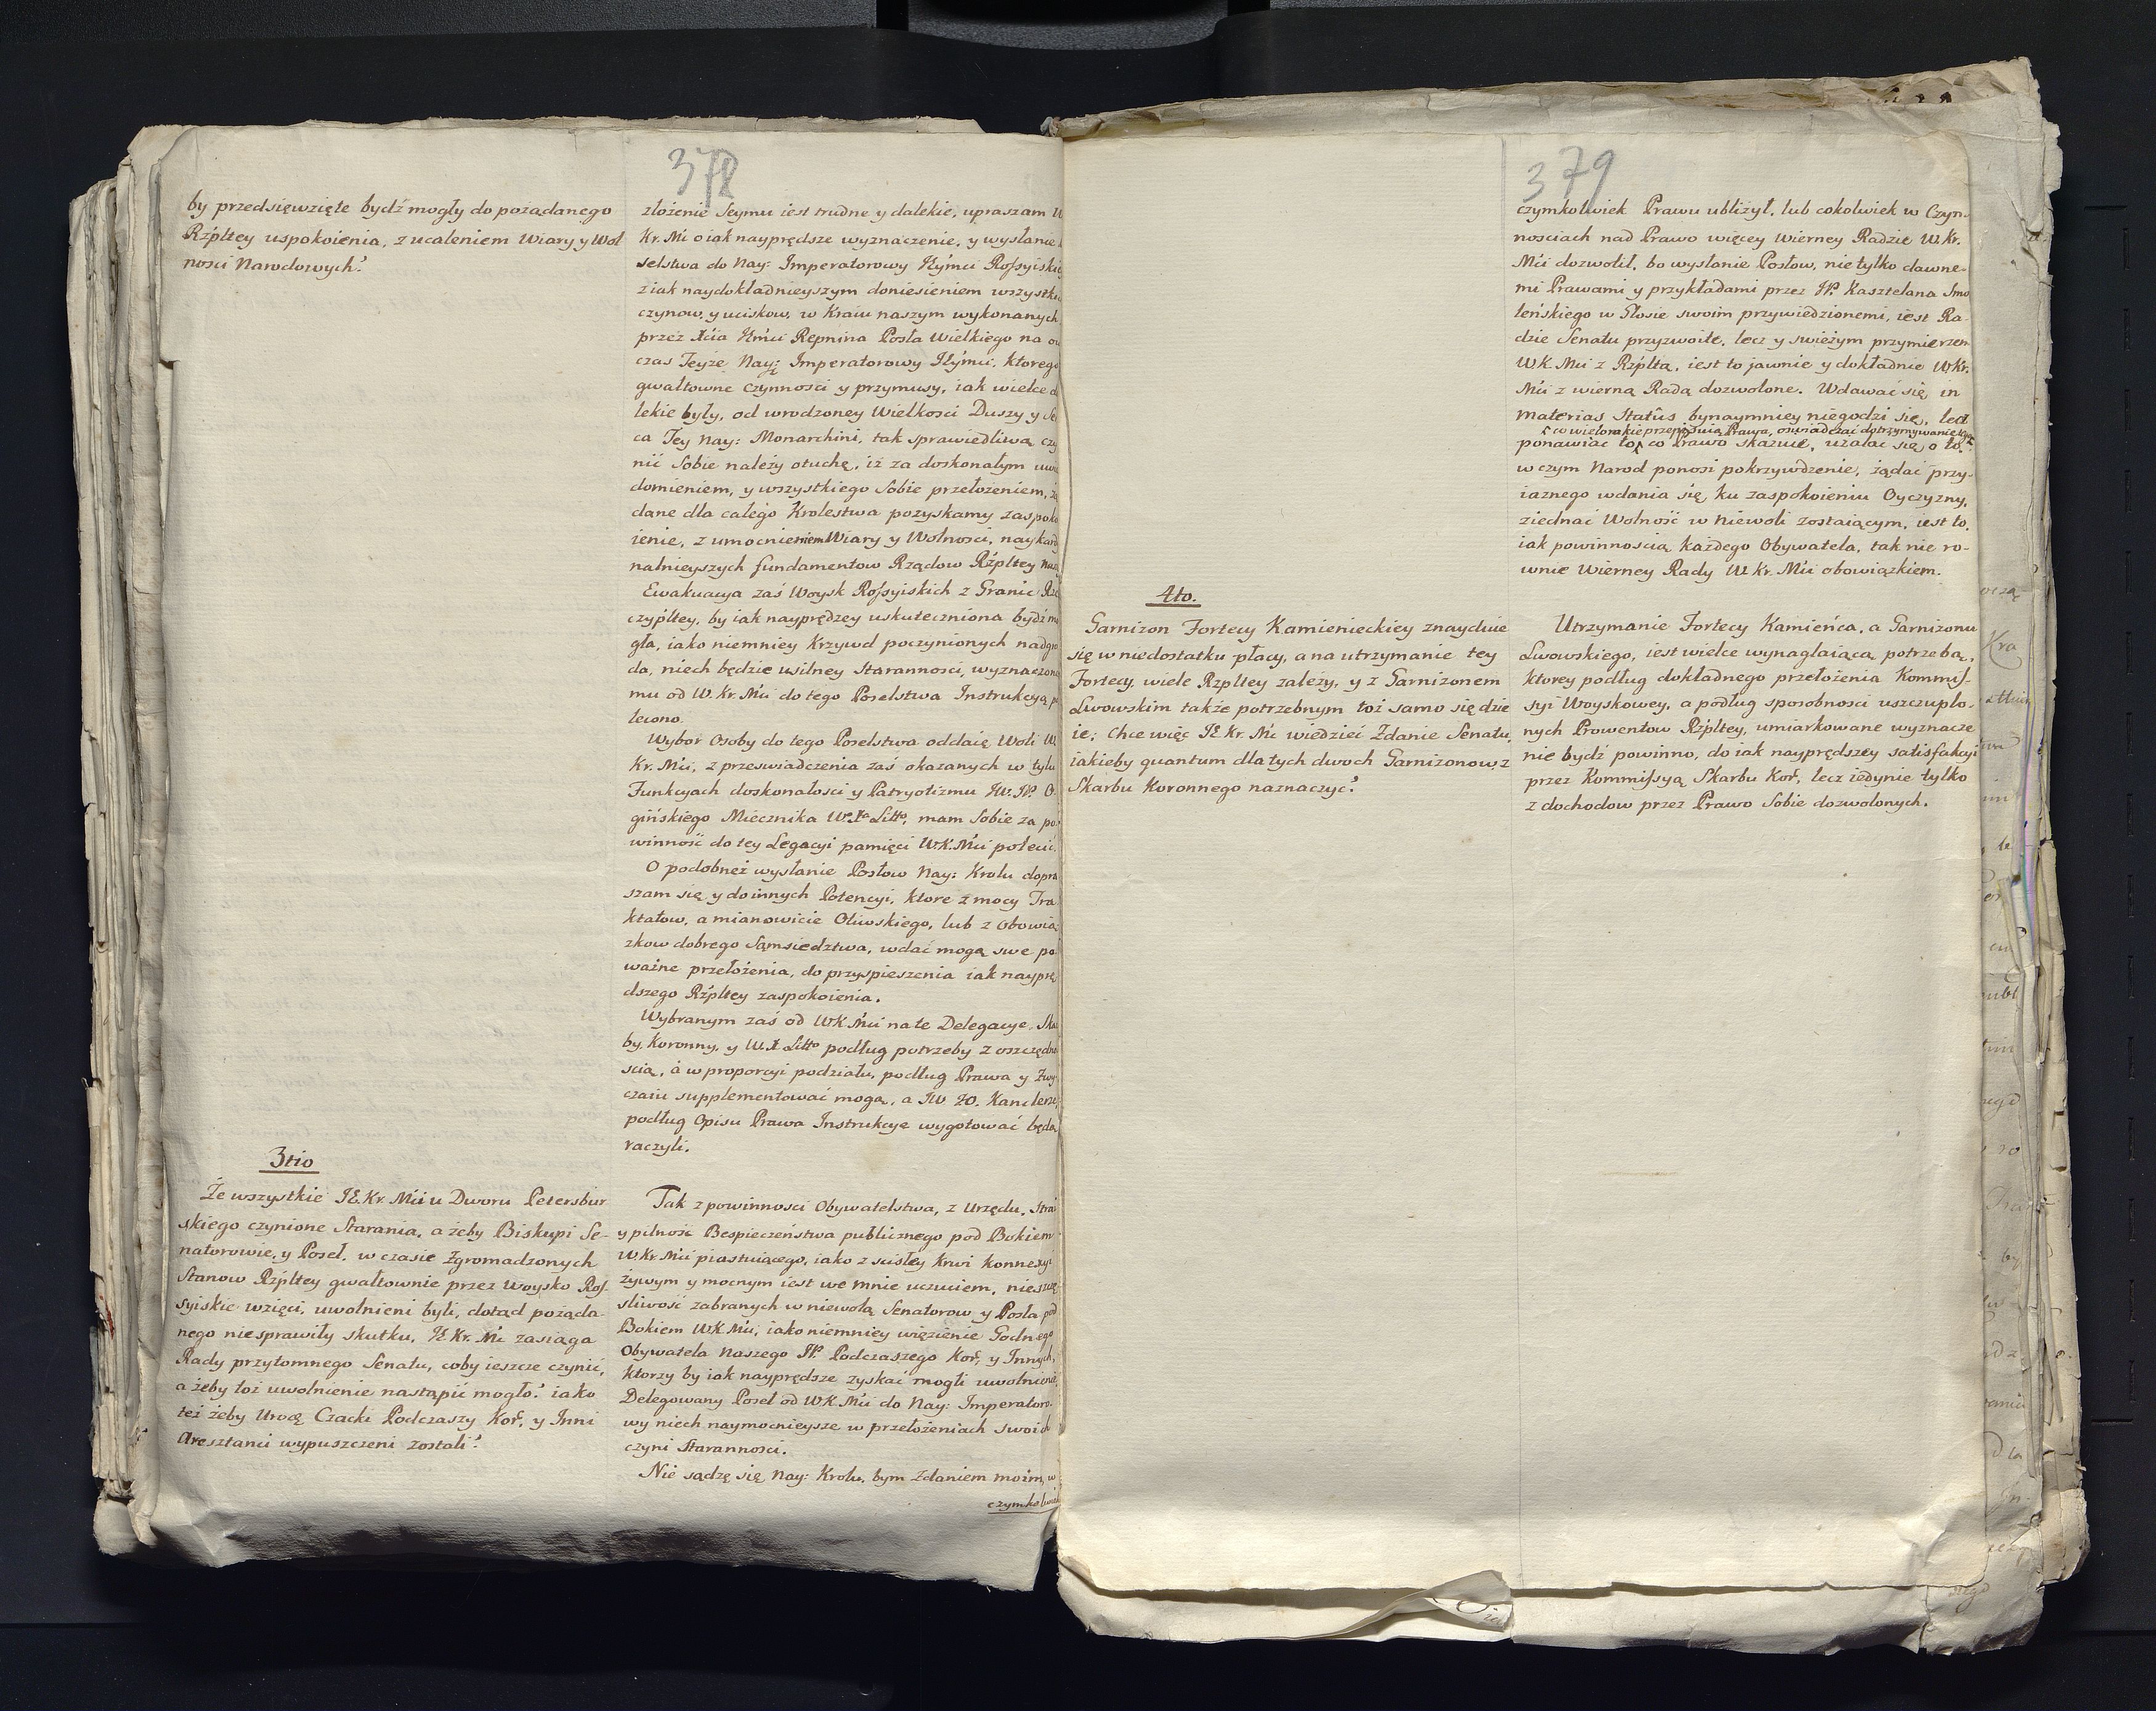 378
by przedsięwzięte bydź mogły do pożądanego
Rzpltey uspokoienia, z ucaleniem Wiary y Wol
nosci Narodowych?
3tio
Że wszystkie JE. Kr. Mci u Dworu Petersbur
skiego czynione Starania, a żeby Biskupi Se-
natorowie, y Poseł, w czasie Zgromadzonych
Stanow Rzpltey gwałtownie przez Woysko Ros-
syiskie wzięci, uwolnieni byli, dotąd pożąda-
nego niesprawiły skutku, JE. Kr. Mc zasiąga
Rady przytomnego Senatu, coby ieszcze czynić,
a żeby toż uwolnienie nastąpić mogło? iako
też żeby Urodz Czacki Podczaszy Kor, y Inni
Aresztanci wypuszczeni zostali?
złożenie Seymu iest trudne y dalekie, upraszam W
Kr. Mci o iak nayprędsze wyznaczenie, y wysłanie
selstwa do Nay: Imperatorowy Jeymci Rossyiskiey
z iak naydokładnieyszym doniesieniem wszystkich
czynow, y uciskow, w Kraiu naszym wykonanych
przez Xcia Jmci Repnina Posła Wielkiego na ow
czas Teyże Nay: Imperatorowy Jeymci, ktorego
gwałtowne czynnosci y przymusy, iak wielce da
lekie były, od wrodzoney Wielkosci Duszy y Ser
ca Tey Nay: Monarchini, tak sprawiedliwą czy
nić Sobie należy otuchę, iż za doskonałym uwia
domieniem, y wszystkiego Sobie przełożeniem, żą
dane dla całego Krolestwa pozyskamy zaspoko
ienie, z umocnieniem Wiary y Wolnosci, naykardy
nalnieyszych fundamentow Rządow Rzpltey naszey
Ewakuacya zaś Woysk Rossyiskich z Granic Rze
czypltey, by iak nayprędzey uskuteczniona bydź mo
gła, iako niemniey Krzywd poczynionych nadgro
da, niech będzie usilney Starannosci, wyznaczone
mu od W. Kr. Mci do tego Poselstwa Instrukcyą po
lecono.
Wybor Osoby do tego Poselstwa oddaię Woli W
Kr. Mci, z przeswiadczenia zaś okazanych w tylu
Funkcyach doskonałosci y Patryotizmu JW. JP. O
gińskiego Miecznika W. X. Litto, mam Sobie za po
winność do tey Legacyi pamięci WK. Mci polecić.
O podobneż wysłanie Posłow Nay: Krolu dopra
szam się y do innych Potencyi, ktore z mocy Tra
ktatow, a mianowicie Oliwskiego, lub z Obowią
zkow dobrego Sąmsiedztwa, wdać mogą swe po
ważne przełożenia, do przyspieszenia iak nayprę
dszego Rzpltey zaspokoienia.
Wybranym zaś od WK Mci na te Delegacye, Skar
by, Koronny, y W. X Litto podług potrzeby z oszczędno
scią, à w proporcyi podziału, podług Prawa y Zwy
czaiu supplementować mogą, a JW. ZO. Kanclerze
podług Opisu Prawa Instrukcye wygotować będą
raczyli.
Tak z powinnosci Obywatelstwa, z Urzędu, Straż
y pilność Bespieczeństwa publicznego pod Bokiem
W Kr Mci piastuiącego, iako z scisłey Krwi konnexyi
żywym y mocnym iest we mnie uczuciem, nieszczę
sliwość zabranych w niewolą Senatorow y Posła pod
Bokiem WK Mci, iako niemniey więzienie Godnego
Obywatela Naszego JP. Podczaszego Kor, y Innych,
ktorzy by iak nayprędsze zyskać mogli uwolnienie,
Delegowany Poseł od WK Mci do Nay: Imperatoro-
wy niech naymocnieysze w przełożeniach swoich
czyni Starannosci.
Nie sądzę się Nay: Krolu, bym Zdaniem moim, w
czymkolwiek
379
4to.
Garnizon Fortecy Kamienieckiey znayduie
się w niedostatku płacy, a na utrzymanie tey
Fortecy, wiele Rzpltey zależy, y z Garnizonem
Lwowskim także potrzebnym toż samo się dzie
ie; Chce więc JE. Kr. Mc wiedzieć Zdanie Senatu,
iakieby quantum dla tych dwoch Garnizonow z
Skarbu Koronnego naznaczyć?
czymkolwiek Prawu ubliżył, lub cokolwiek w Czyn-
nosciach nad Prawo więcey Wierney Radzie W. Kr.
Mci dozwolił, bo wysłanie Posłow, nie tylko dawne-
mi Prawami y przykładami przez JP. Kasztelana Smo
leńskiego w Głosie swoim przywiedzionemi, iest Ra-
dzie Senatu przyzwoite, lecz y swieżym przymierzem
W.K. Mci z Rzpltą, iest to jawnie y dokładnie W Kr.
Mci z wierną Radą dozwolone. Wdawać się in
materias Statûs bynaymniey niegodzi się, lecz
co wielorakie przepisuią Prawa, oswiadczać dotrzymywanie
ponawiać to, co Prawo skazuie, użalać się o to,
w czym Narod ponosi pokrzywdzenie, żądać przy-
iaznego wdania się ku zaspokoieniu Oyczyzny,
ziednać Wolność w niewoli zostaiącym, iest to,
iak powinnoscią każdego Obywatela, tak nie ro-
wnie Wierney Rady W. Kr. Mci obowiązkiem.
Utrzymanie Fortecy Kamieńca, a Garnizonu
Lwowskiego, iest wielce wynaglaiącą potrzebą,
ktorey podług dokładnego przełożenia Kommis-
syi Woyskowey, a podług sposobnosci uszczuplo-
nych Prowentow Rzpltey, umiarkowane wyznacze
nie bydź powinno, do iak nayprędszey satisfakcyi
przez Kommissyą Skarbu Kor, lecz iedynie tylko
z dochodow przez Prawo Sobie dozwolonych.